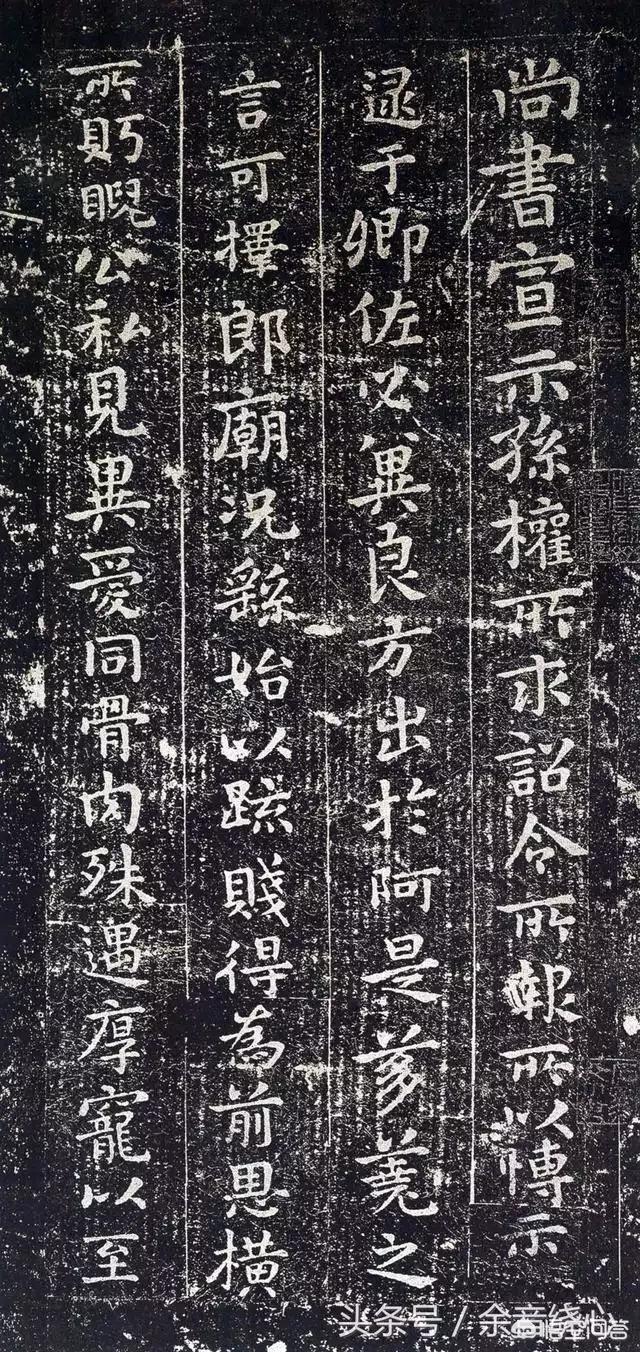 尚書宣示孫權所求詔令所報所以博示
逮于卿佐必冀良方出於阿是芻蕘之
言可擇郎廟況繇始以疏賤得為前恩橫
所䀎睨公私見異愛同骨肉殊遇厚寵以至
头条号 / 余音绕心
悟空问答